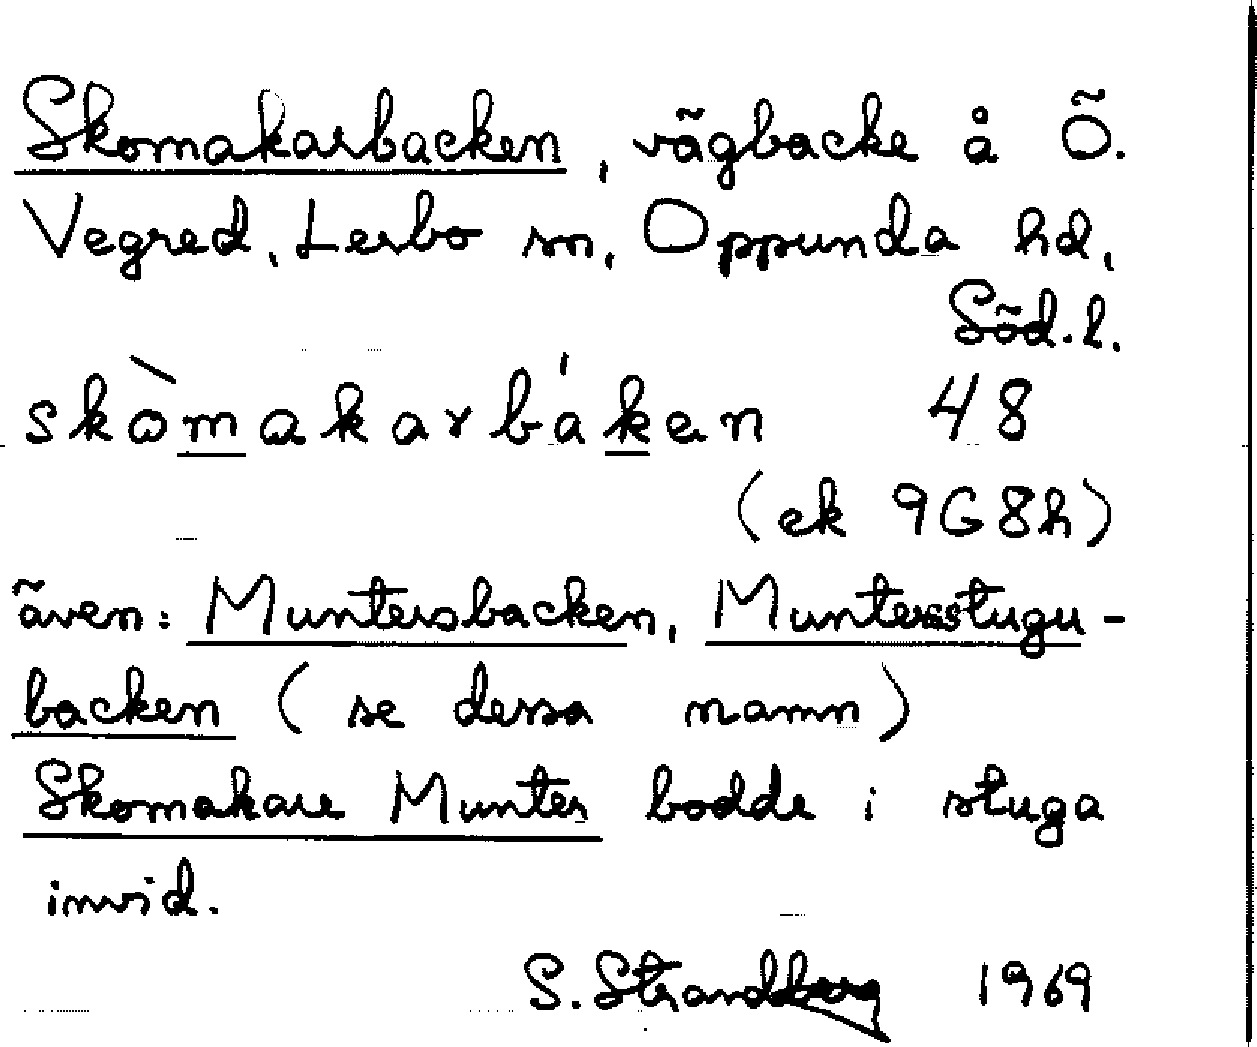 Skomakarbacken, vägbacke å Ö.
Vegred, Lerbo sn, Oppunda hd,
Söd.l.
skòmakarbáken 48
(ek 9G8h)
även: Muntersbacken, Muntersstugu-
backen (se dessa namn)
Skomakare Munter bodde i stuga
invid.
S. Strandberg 1969